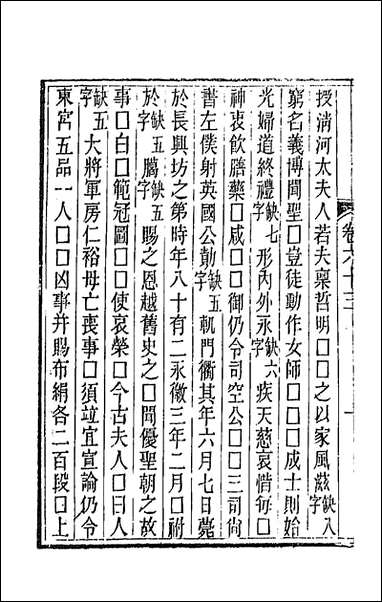 授淸河太夫人若夫稟哲明□□之以家風茲缺八字
窮名義博聞聖□豈徒動作女師□□□成士則始
光婦道終禮缺七字形內外永缺六字疾天慈哀情每□
神衷飲膳藥□咸□□御仍令司空公□□三司尙
書左僕射英國公勣缺五字軌門衢其年六月七日薨
於長興坊之第時年八十有二永徽三年二月□祔
於缺五字膓缺五字賜之恩越舊史之□問優聖朝之故
事□白□範冠圖□□使哀榮□今古夫人□曰人
缺五字大將軍房仁裕母亡喪事□須竝宜宣論仍令
東宮五品一人□□凶事幷賜布絹各二百段□上
卷六十三